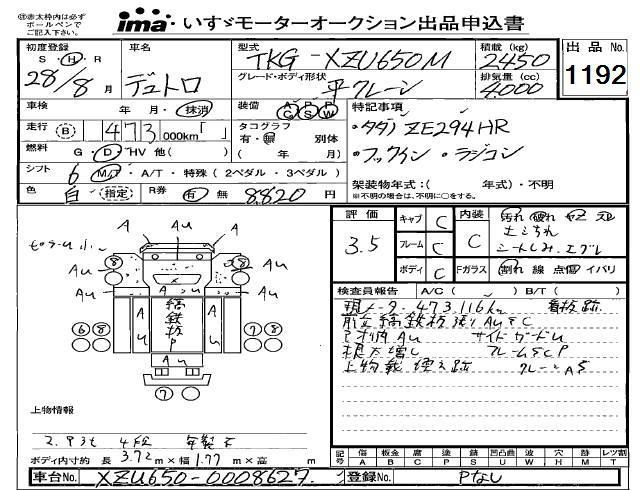 ㊟赤太枠内は必ず
ボールペンで
ご記入下さい。
ima いすゞモーターオークション出品申込書
初度登録 S・H・R 28/8月
車名 デュトロ
型式 TKG-XZU650M
積載(kg) 2450
出品No. 1192
グレード・ボディ形状 平クレーン
排気量(cc) 4,000
車検 年 月・抹消
装備 AC PS PW
特記事項
走行 B 473,000km「 」
タコグラフ 有・無 別体 ( 年 月)
・タダノZE294HR
燃料 G・D・HV 他( )
・フックイン・ラジコン
シフト 6 M/T・A/T・特殊(2ペダル・3ペダル)
架装物年式:( 年式)・不明
※不明の場合は、不明に○をする。
色 白 (指定)
R券 有 無 8820 円
評価 3.5
キャブ C
フレーム C
ボディ C
内装 C
Fガラス 割れ 線 点傷 イバリ
汚れ 破れ
シートしみ.
検査員報告 A/C( ) B/T( )
現メーター473,116km 看板跡
縞鉄板張りAuSC
Au サイドガードU
根太増し フレームSCP
A A A
Au Au
Au Au
8 8
A 縞鉄板P A
6 8 7 8
Au
7
上物情報
2.93t 4段
ボディ内寸約 長 3.72m×幅 1.77m×高 m
記号 傷A 板金B 腐C 塗P 錆S 凹凸曲U 波W 穴H 跡M レンズ割T
車台No. XZU650-0008627
登録No. Pなし